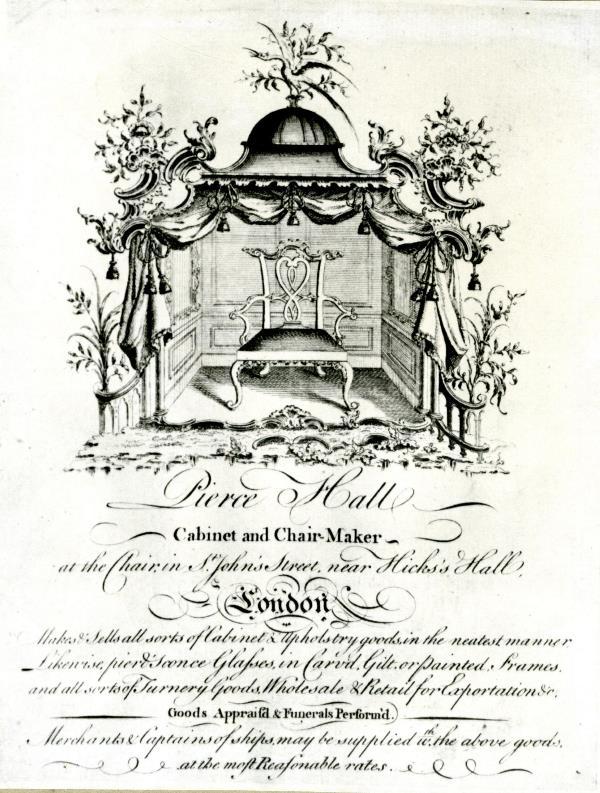 Pierce Hall
Cabinet and Chair-Maker
at the Chair, in St. John's Street, near Hicks's Hall,
London
Makes & Sells all sorts of Cabinet & Upholstry goods, in the neatest manner
Likewise, pier & Sconce Glaſses, in Carv'd, Gilt, or painted Frames,
and all sorts of Turnery Goods, Wholesale & Retail for Exportation &c.
Goods Apprais'd & Funerals Perform'd.
Merchants & Captains of ships, may be supplied wth. the above goods,
at the moſt Reaſonable rates.